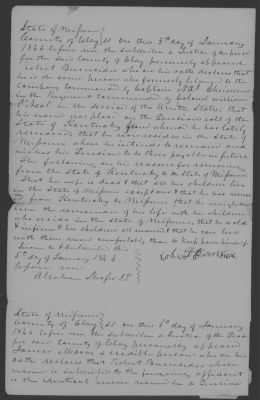 State of Missouri
County of Clay SS On this 5th day of January
1844 before me the subscriber a Justice of the peace
for the said County of Clay personally appeared
Robert Burnsides who on his oath declares that
he is the same person who formerly belonged to the
Company commanded by Captain
in the Regiment commanded by Colonel William
O'Neal in the service of the United States; that
his name was placed on the Pension roll of the
State of Kentucky from whence he has lately
removed; that he now resides in the State of
Missouri where he intends to remain and
wishes his Pension to be there payable in future
The following are his reasons for removing
from the State of Kentucky to the State of Missouri
that his wife is dead & that all his children live
in the State of Missouri except one & that he has remov
ed from Kentucky to Missouri that he might
the remainder of his life with his children
who reside in the State of Missouri, that he is old
& infirm & his children all married & that he can live
with them more comfortably than to keep house himself
Sworn to & subscribed this
5th day of January 1844
before me
Abraham J.P.
State of Missouri
County of Clay SS On this 6th day of January
1844 before me the subscriber a Justice of the Peace
for said County of Clay personally appeared
James Moore a credible person who on his
oath declares that Robert Burnsides whose
name is subscribed to the foregoing affidavit
is the identical person named in a Pension